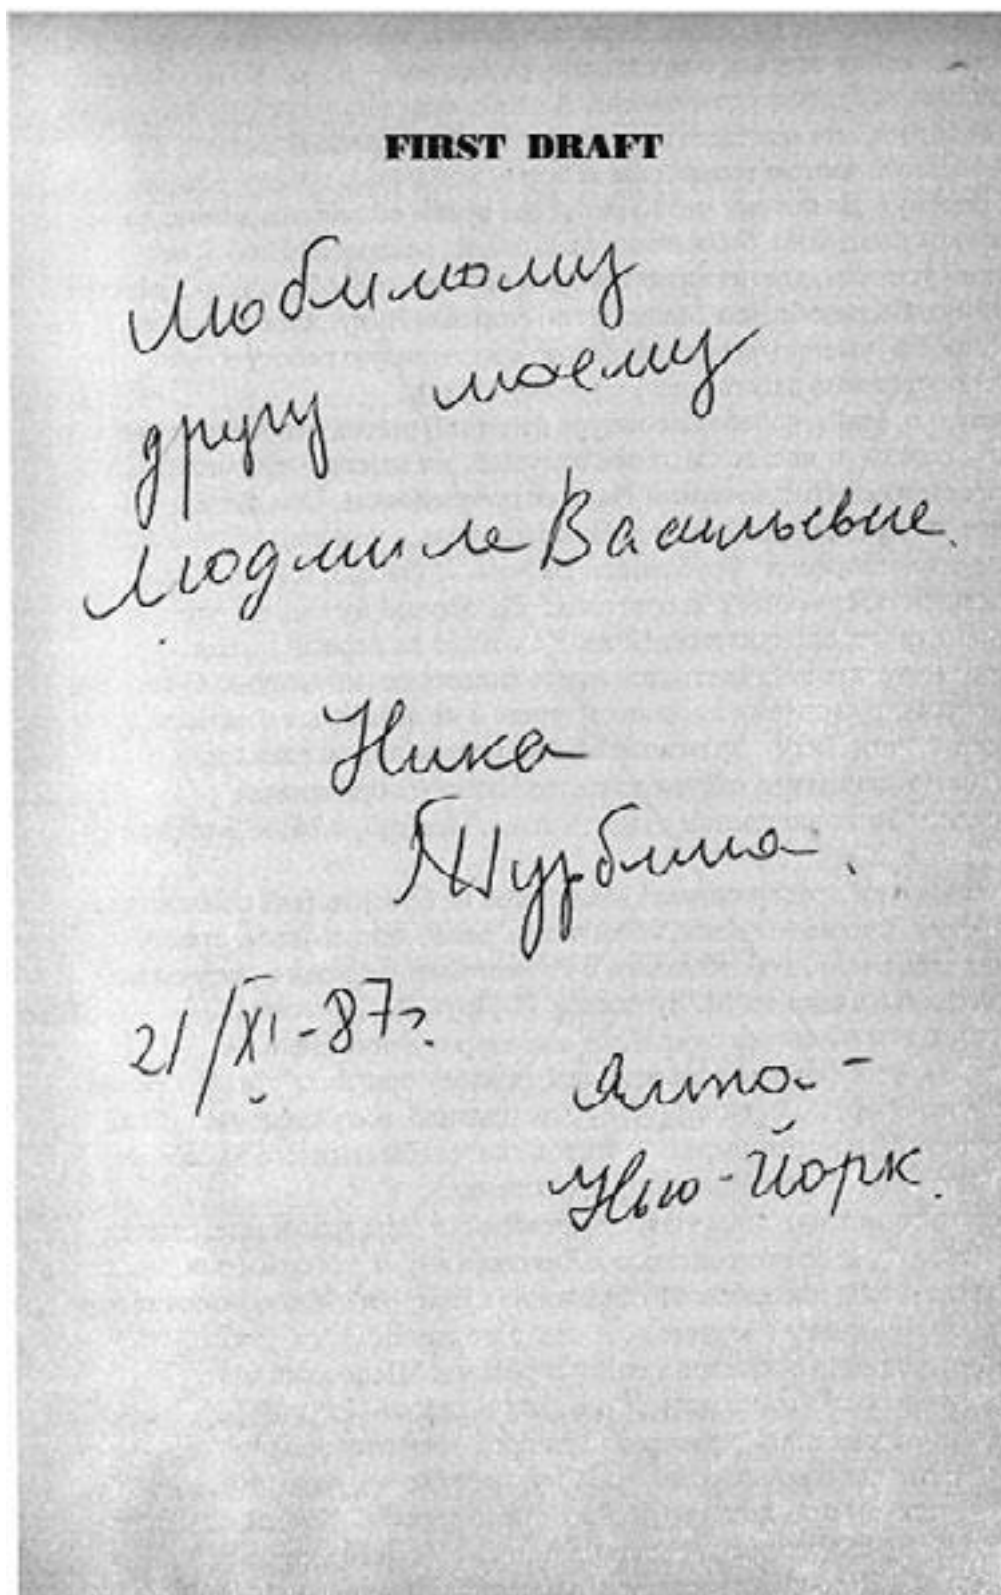 FIRST DRAFT
Любимому
другу моему
Людмиле Васильевне.
Ника
Турбина.
21/XI-87г.
Ялта-
Нью-Йорк.